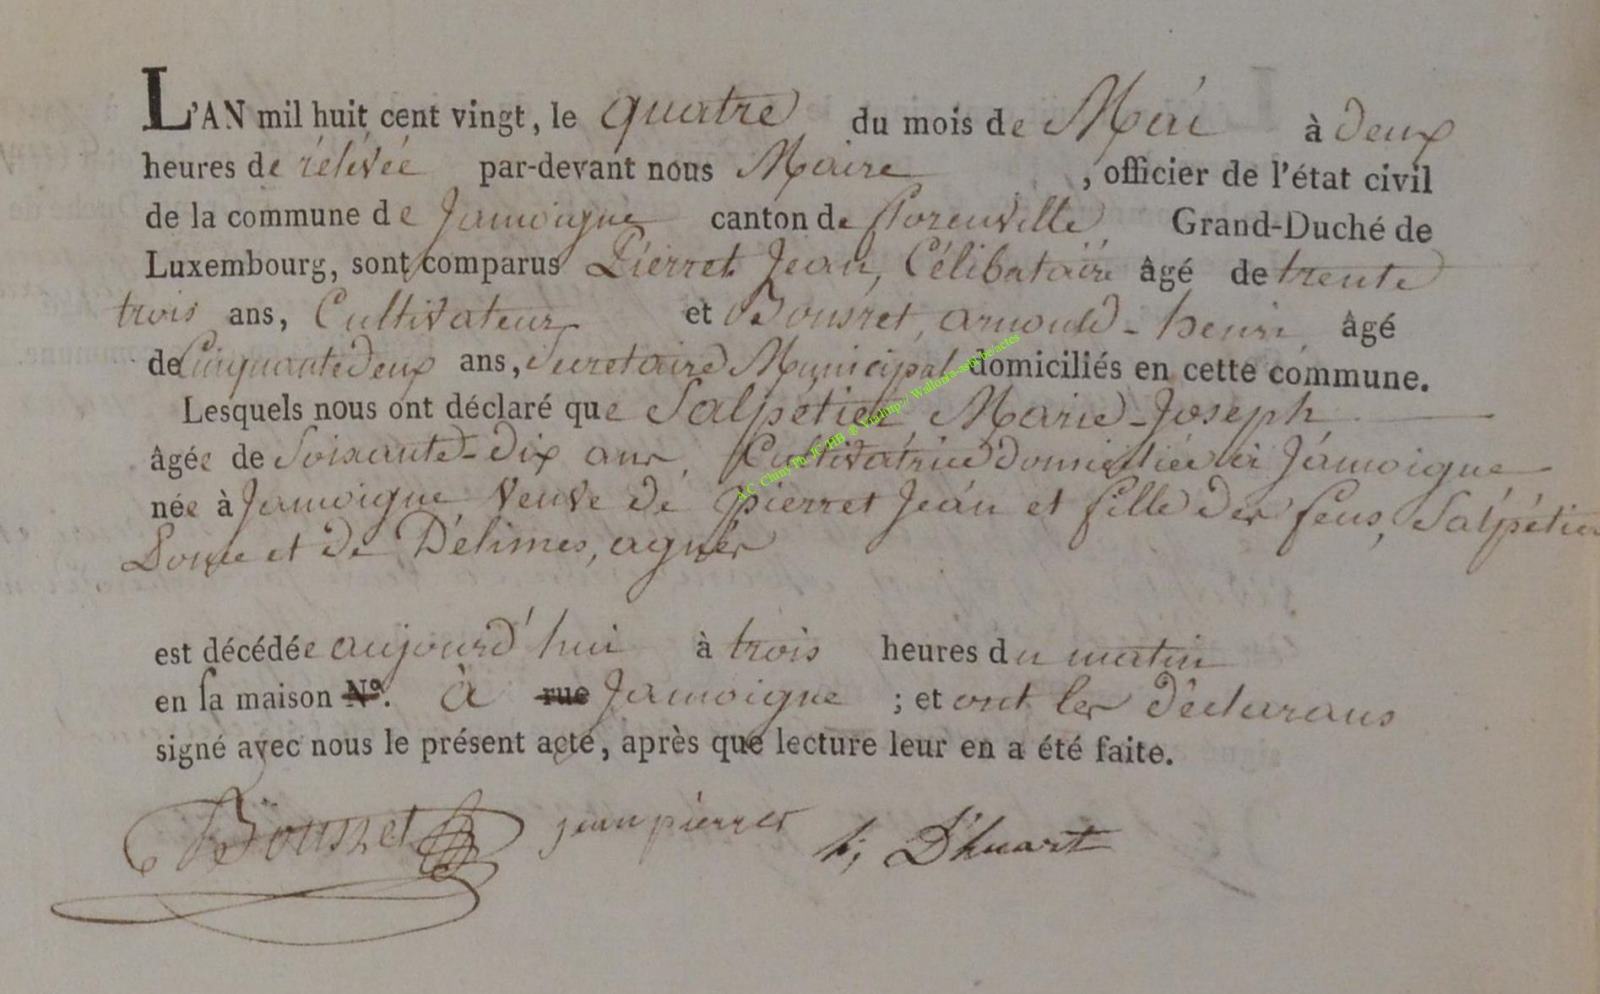 L'AN mil huit cent vingt, le quatre du mois de Mai à deux
heures de rélévée par-devant nous Maire , officier de l'état civil
de la commune de Jamoigne canton de florenville Grand-Duché de
Luxembourg, sont comparus Pierret Jean, Célibataire âgé de trente
trois ans, Cultivateur et Bousret, arnould-henri âgé
de Cinquante deux ans, Secretaire Municipal domiciliés en cette commune.
Lesquels nous ont déclaré que Salpétier Marie-Joseph
âgée de Soixante-dix ans, Cultivatrice domiciliée à Jamoigne
née à Jamoigne Veuve de pierret Jean et fille des feus, Salpétier
et de Délimes, agnès
est décédée aujourd'hui à trois heures du matin
en sa maison N°. à rue Jamoigne ; et ont les déclarans
signé avec nous le présent acte, après que lecture leur en a été faite.
Bousret jean pierret h; D'huart
A.C. Chiny Ph. JC HB @ Via http:// Wallonia-asbl.be/actes